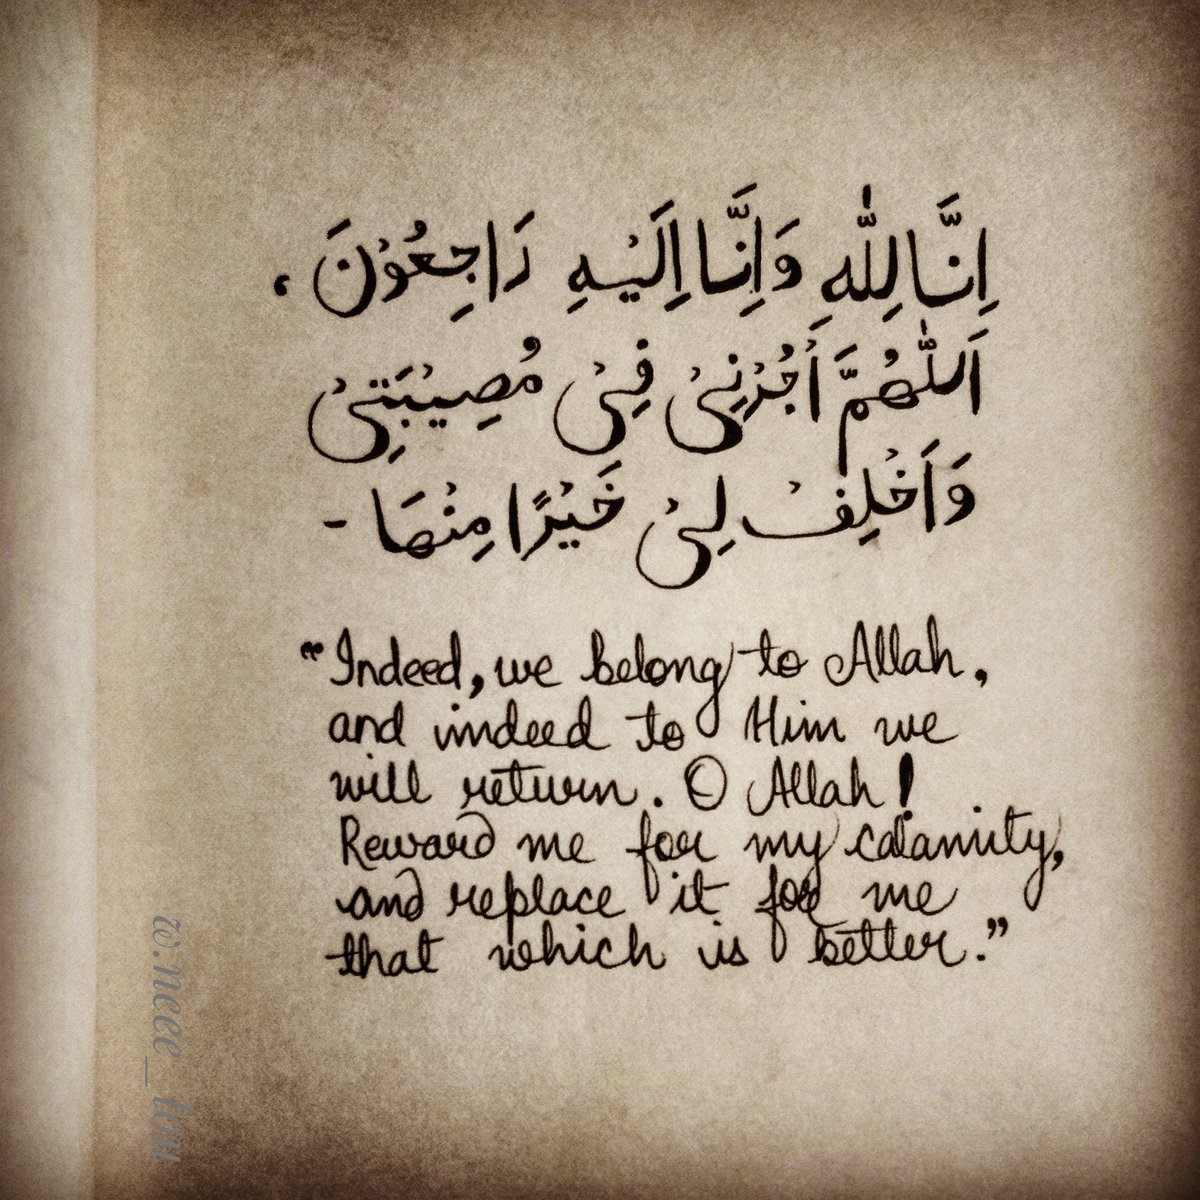 اِنَّا لِلّٰهِ وَاِنَّا اِلَيْهِ رَاجِعُوْنَ ،
اَللّٰهُمَّ أَجُرْنِىْ فِىْ مُصِيْبَتِىْ
وَاَخْلِفْ لِىْ خَيْرًا مِنْهَا -
“Indeed, we belong to Allah,
and indeed to Him we
will return. O Allah!
Reward me for my calamity,
and replace it for me
that which is better.”